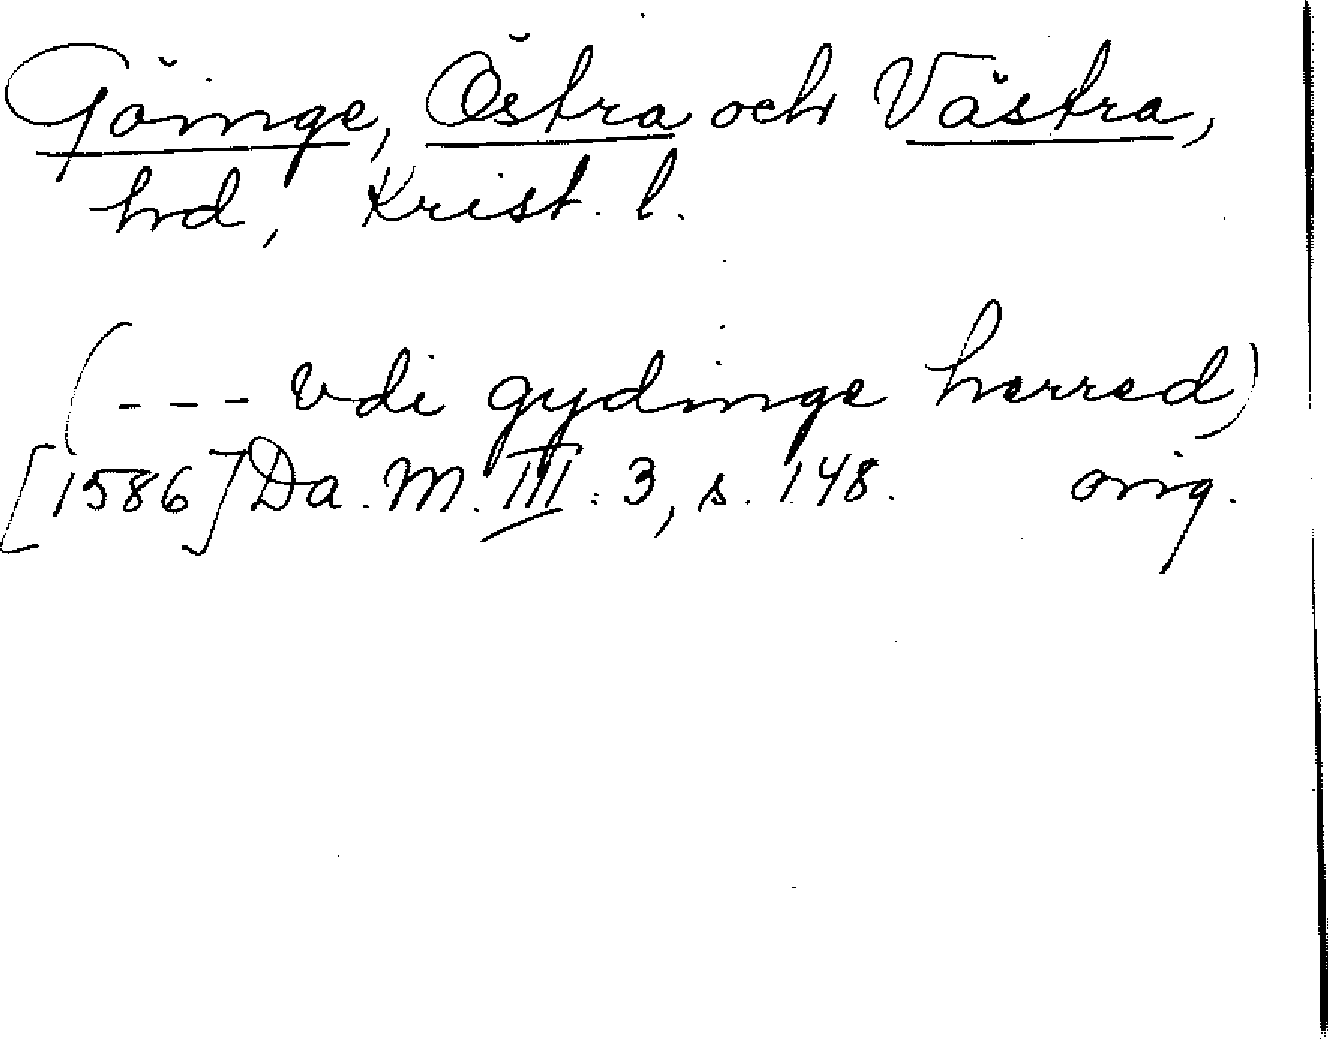 Göinge, Östra och Västra,
hd, Krist. l.
(--- vdi gydinge herred)
[1586] Da. M. III: 3, s. 148. orig.